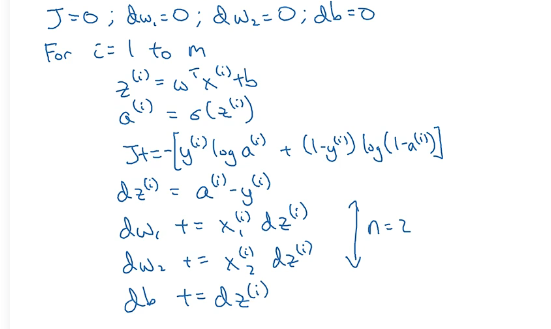 J=0; dw₁=0; dw₂=0; db=0
For i=1 to m
z⁽ⁱ⁾ = wᵀx⁽ⁱ⁾+b
a⁽ⁱ⁾ = σ(z⁽ⁱ⁾)
J+=-[y⁽ⁱ⁾ log a⁽ⁱ⁾ + (1-y⁽ⁱ⁾) log(1-a⁽ⁱ⁾)]
dz⁽ⁱ⁾ = a⁽ⁱ⁾-y⁽ⁱ⁾
dw₁ += x₁⁽ⁱ⁾ dz⁽ⁱ⁾
n=2
dw₂ += x₂⁽ⁱ⁾ dz⁽ⁱ⁾
db += dz⁽ⁱ⁾